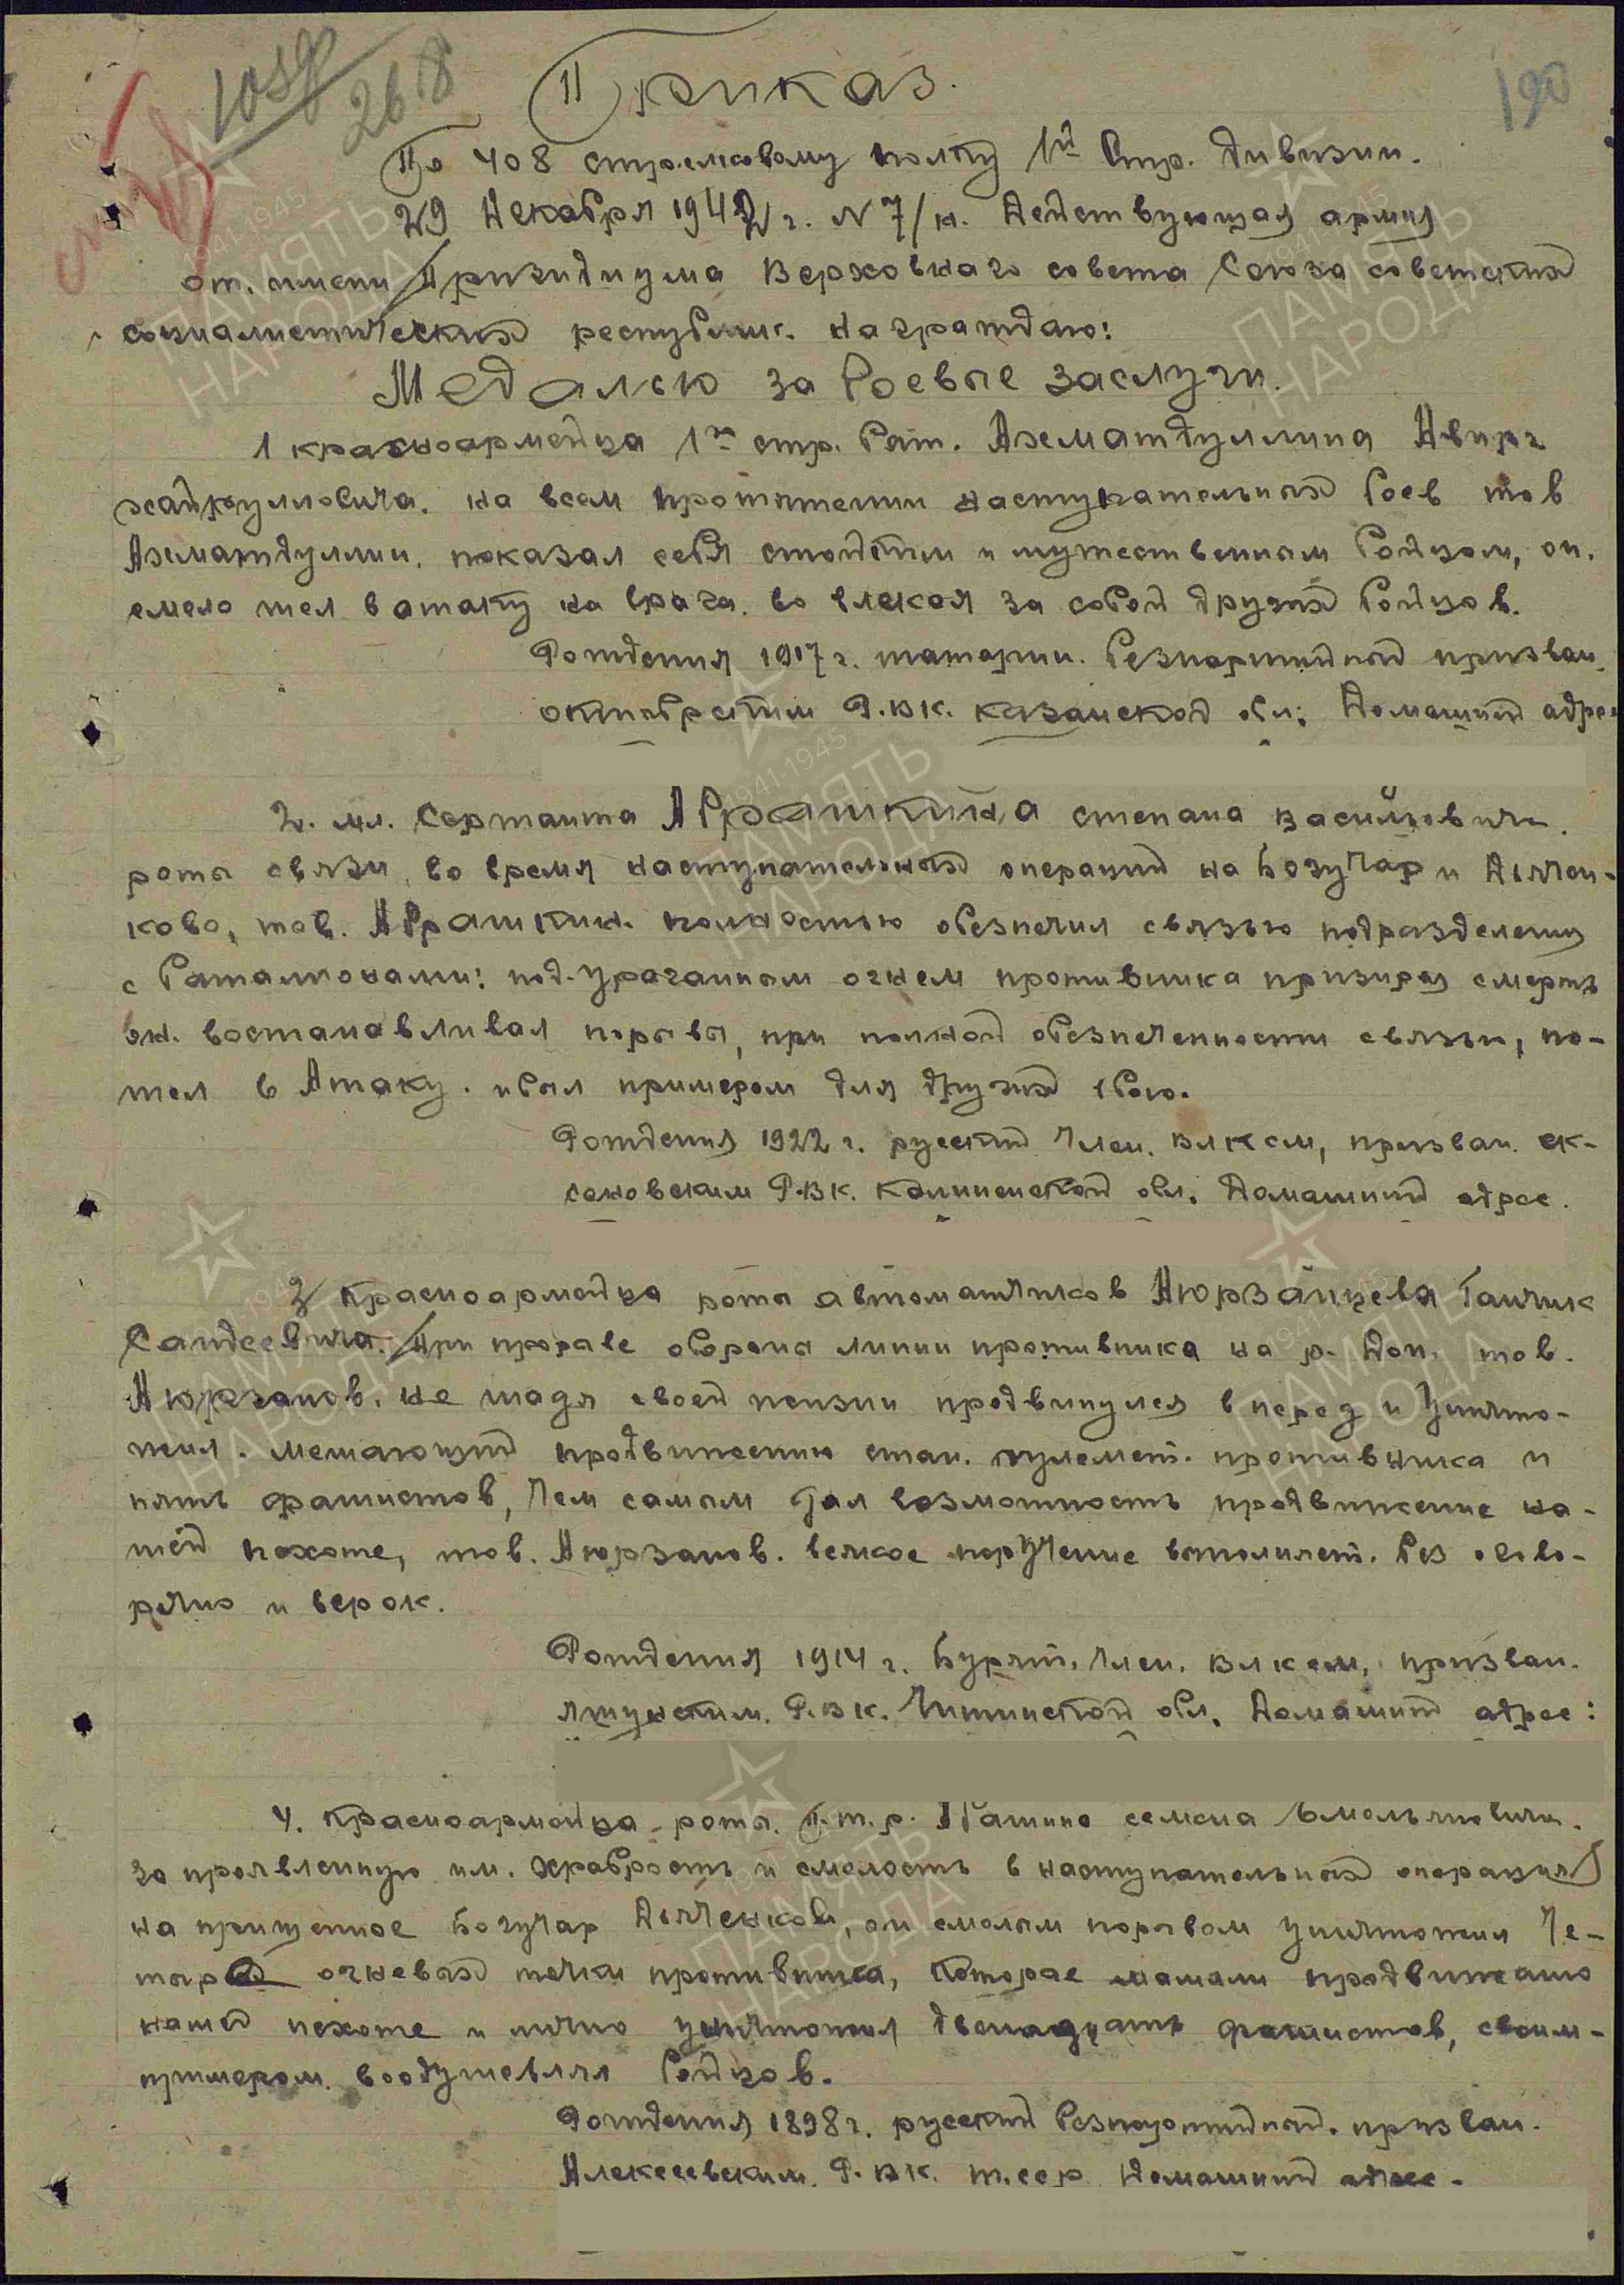 1058
268
190
Приказ.
По 408 стрелковому полку 1й Стр. дивизии.
29 декабря 1942 г. N 7/н. Действующая армия
от. имени Призидиума Верховнаго совета Союза советских
социалистических республик. награждаю:
Медалью за боевые заслуги.
1 красноармейца 1го стр. бат.
на всем протяжении наступательных боев тов
показал себя стойким и мужественным бойцом, он.
смело шел в атаку на врага. во влекая за собой других бойцов.
Рождения 1917 г. татарин. безпартийный призван.
октябрским Р.В.К. казанской обл; Домашний адрес
2. мл. Сержанта Абрашкина степана васильевича.
роты связи, во время наступательных операций на Богучар и Дьячен-
ково, тов. Абрашкин. полностью обезпечил связью подразделения
с баталионами: под. ураганным огнем противника призирая смерть
он. востанавливал порывы, при полной обезпеченности связи, по-
шел в Атаку. и был примером для других в бою.
Рождения 1922 г. русский член. ВЛКСМ, призван. ек-
сеновским Р.В.К. Калининской обл. Домашний адрес.
3 Красноармейца роты автоматчиков
При прорыве обороны линии противника на р. Дон. тов.
Аюрзанов. не щадя своей жизни продвинулся в перед и уничто-
жил. мешающий продвижению стан. пулемет. противника и
пять фашистов, чем самым дал возможность продвижение на-
шей пехоте, тов. Аюрзанов. всякое поручение выполняет. без огово-
рочно и в срок.
Рождения 1914 г. Бурят. член. ВЛКСМ, призван.
Р.В.К. Читинской обл. Домашний адрес:
4. Красноармейца роты. П.т.р. Абашино семена Емельяновича.
за проявленную им. храбрость и смелость в наступательных операциях
на Богучар Дьяченково, он смелым порывом уничтожил че-
тыре огневых точки противника, которые мешали продвижению
нашей пехоте и лично уничтожил двенадцать фашистов, своим-
примером. воодушевлял бойцов.
Рождения 1898 г. русский безпартийный. призван.
Алексеевским. Р.В.К. т.сср Домашний адрес-
ПАМЯТЬ НАРОДА
1941-1945